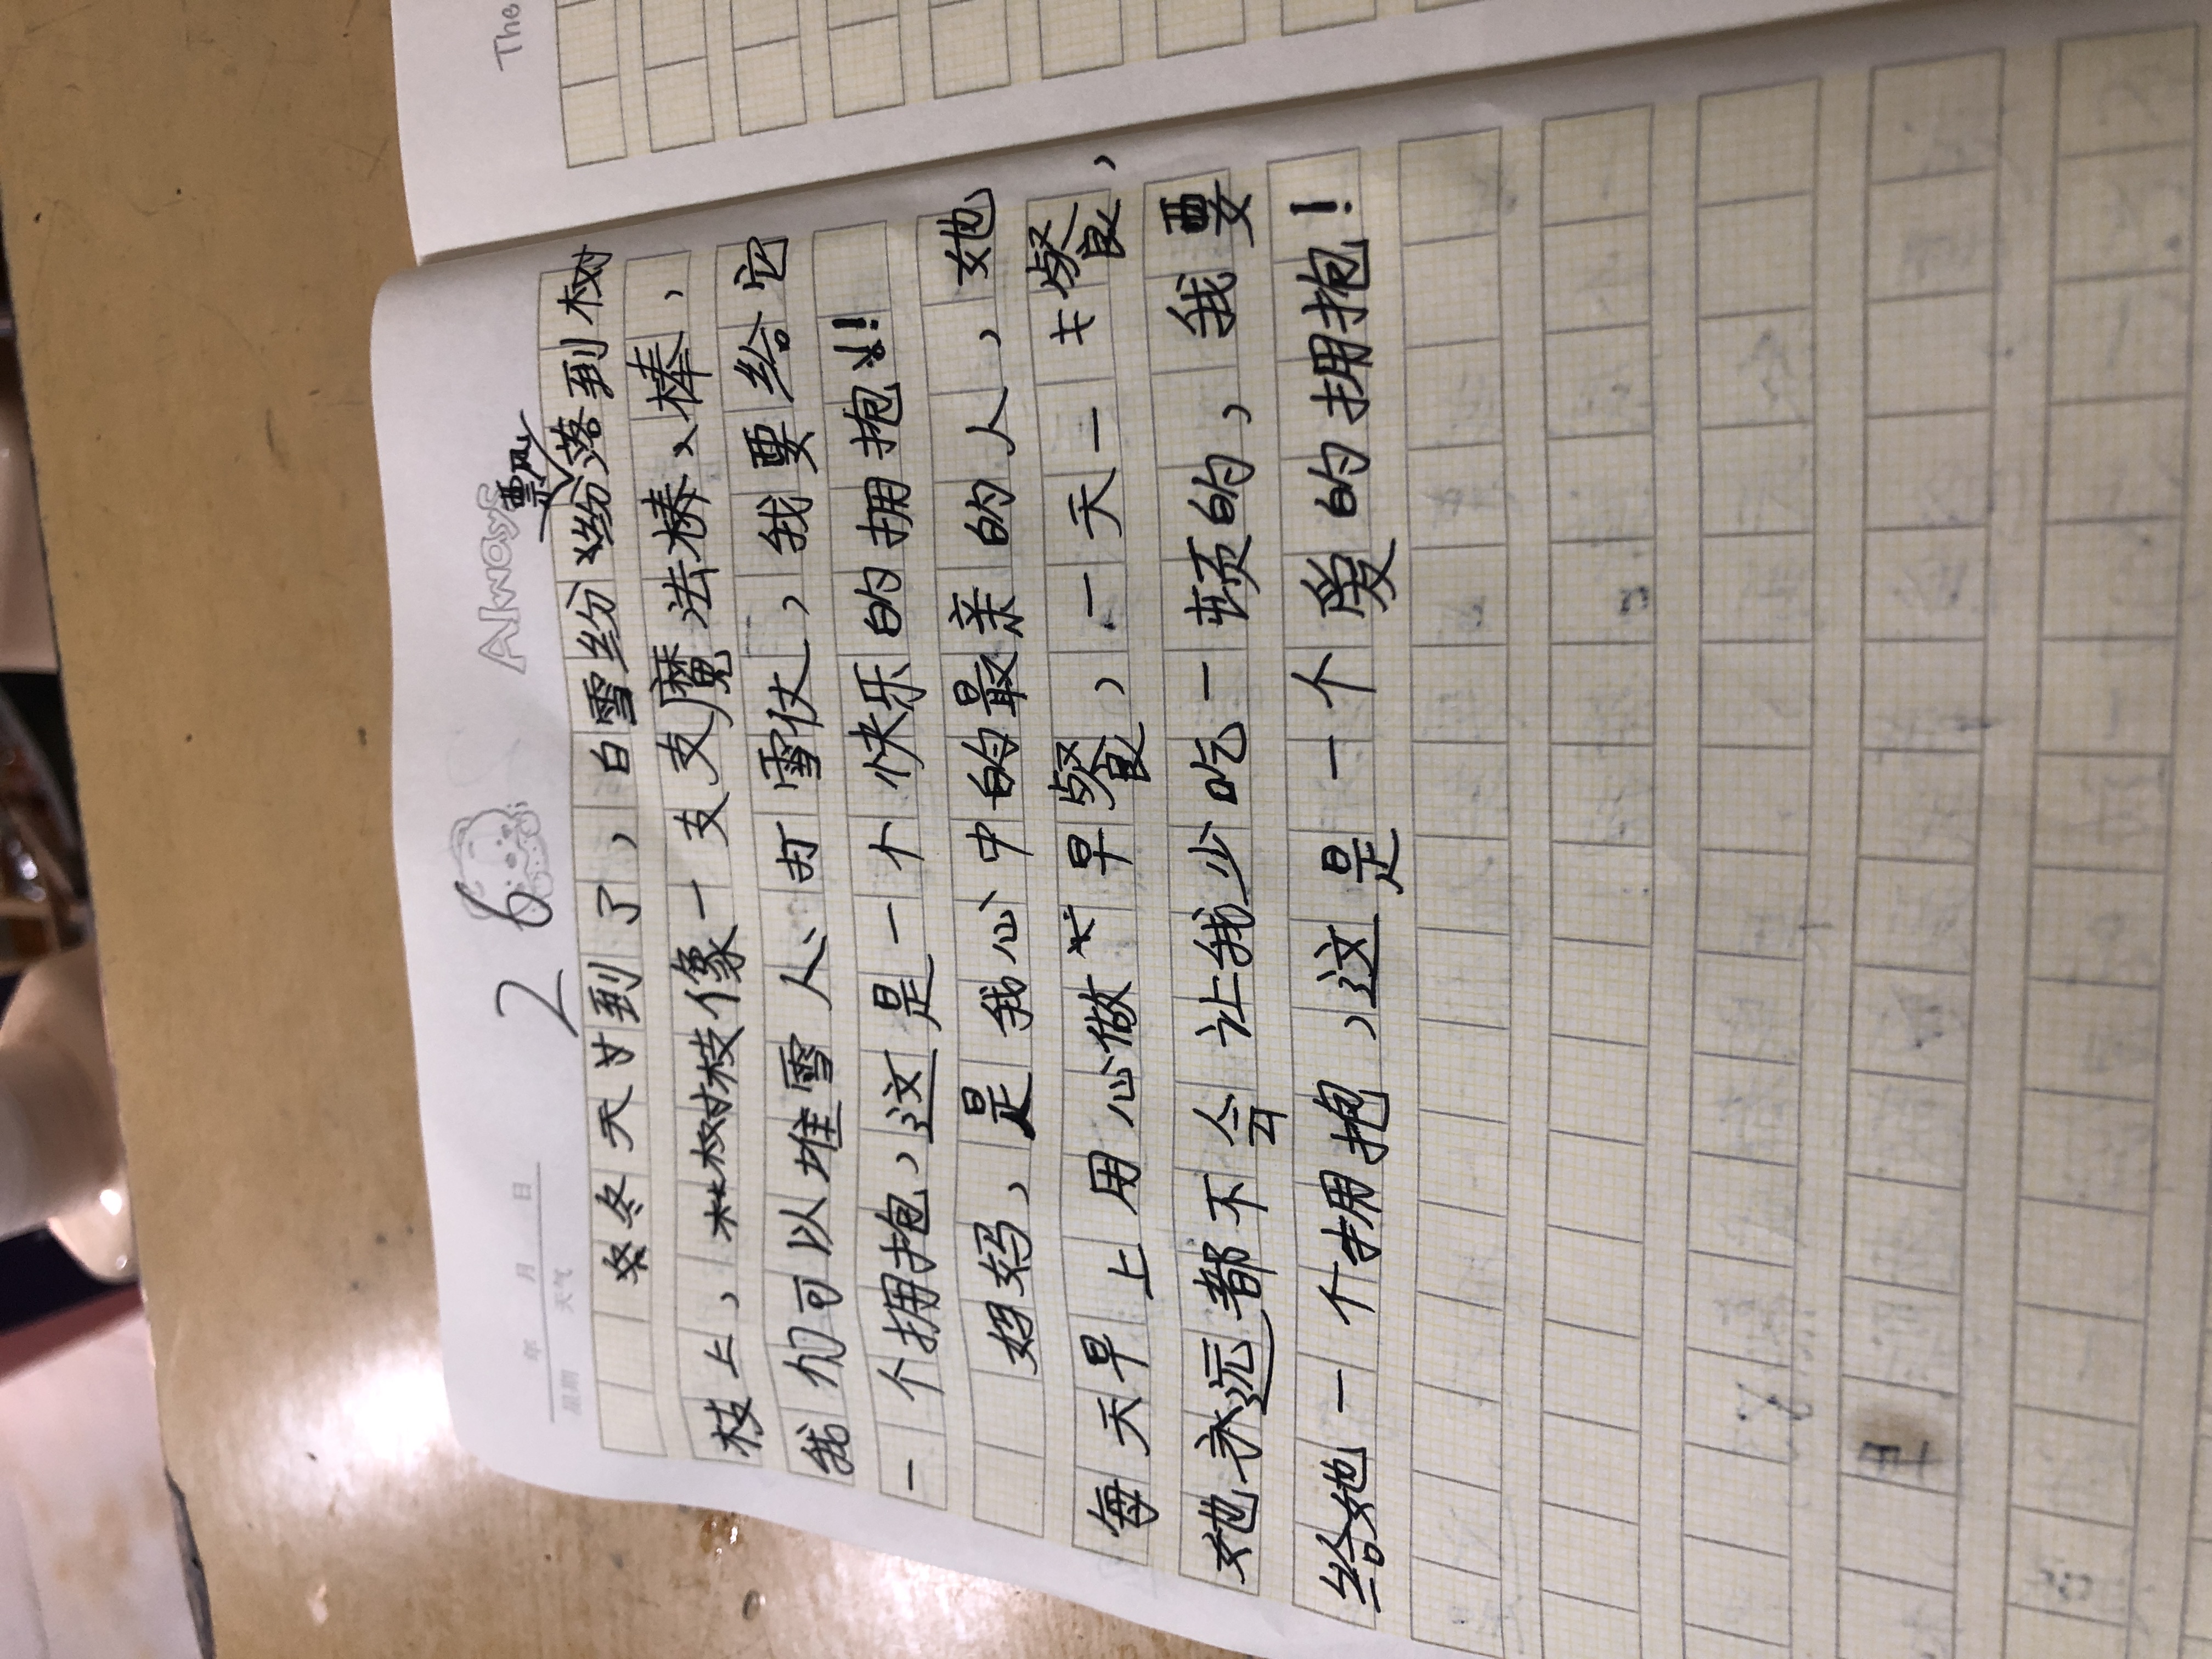 The
Always
26
年 月 日
星期 天气
冬天到了，白雪纷纷飘落到树
枝上，树枝像一支支魔法棒，
我们可以堆雪人、打雪仗，我要给它
一个拥抱，这是一个快乐的拥抱！
妈妈，是我心中的最亲的人，她
每天早上用心做早餐，一天一餐，
她永远都不会让我少吃一顿的，我要
给她一个拥抱，这是一个爱的拥抱！